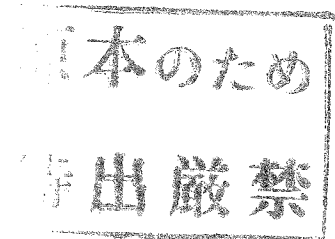 本のため
出厳禁